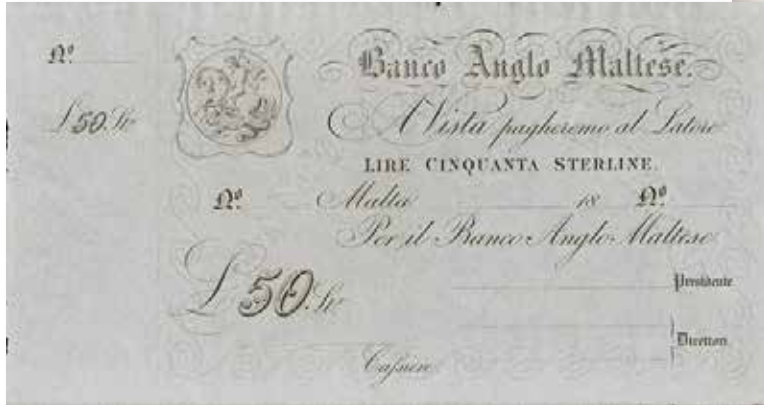 Nº
£50. Str
Banco Anglo Maltese.
A Vista pagheremo al Latore
LIRE CINQUANTA STERLINE.
Nº Malta 18 Nº
Per il Banco Anglo Maltese
£50. Str
Presidente
Direttori
Cassiere